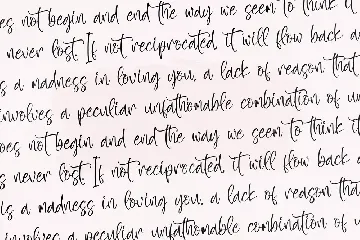 es not begin and end the way we seem to think it
never lost If not reciprocated it will flow back a
s a madness in loving you, a lack of reason that
involves a peculiar unfathomable combination of un
oes not begin and end the way we seem to think it
s never lost If not reciprocated, it will flow back a
is a madness in loving you, a lack of reason that
involves a peculiar unfathomable combination of